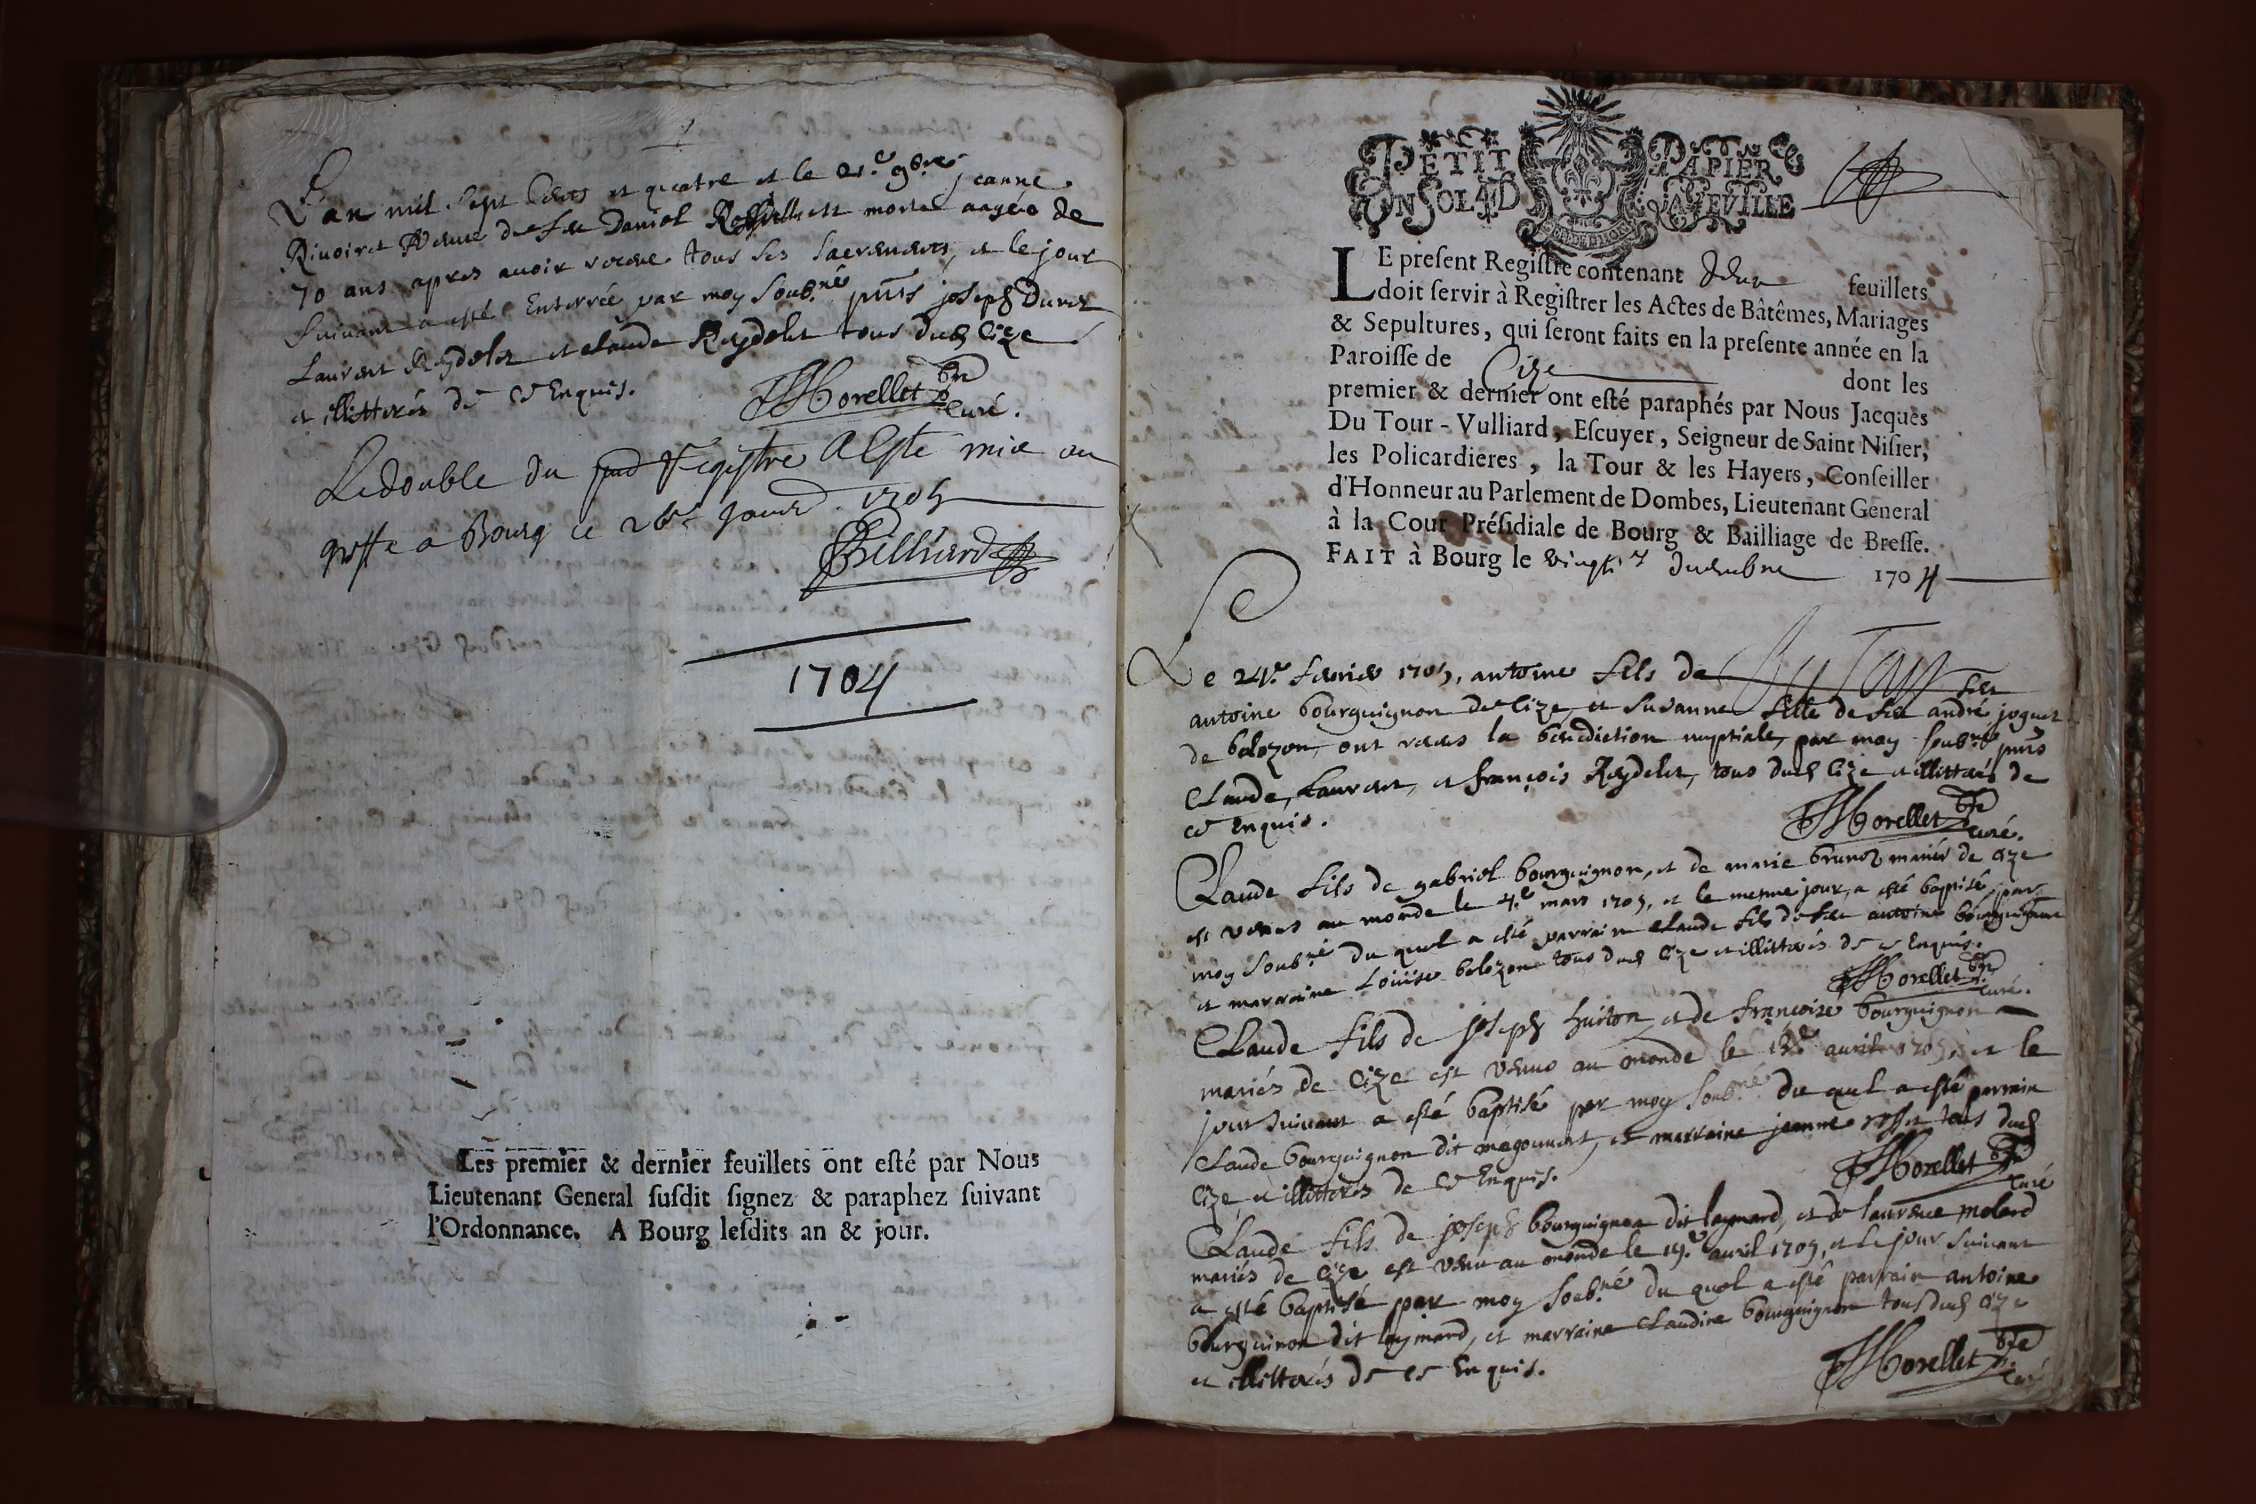 L'an mil sept cents et quatre et le 21.e 9bre jeanne
Rivoiret Veuve de feu Daniel est morte aagée de
70 ans apres avoir receue tous ses sacrements, et le jour
suivant a esté Enterrée par moy soub.né pnts joseph Durez
Laurent Reydelet et claude Reydelet tous dud Cize
et illitterés de ce Enquis.
Morellet ptre
curé.
Le double du pnt registre A Esté mis au
greffe a Bourg ce 26e janvr 1705
Billiard
1704
Les premier & dernier feuillets ont esté par Nous
Lieutenant General susdit signez & paraphez suivant
l'Ordonnance. A Bourg lesdits an & jour.
PETIT PAPIER
UN SOL 4 D LA FEVILLE
LE present Registre contenant feuillets
doit servir à Registrer les Actes de Bâtêmes, Mariages
& Sepultures, qui seront faits en la presente année en la
Paroisse de Cize dont les
premier & dernier ont esté paraphés par Nous Jacques
Du Tour - Vulliard, Escuyer, Seigneur de Saint Nisier,
les Policardieres, la Tour & les Hayers, Conseiller
d'Honneur au Parlement de Dombes, Lieutenant General
à la Cour Présidiale de Bourg & Bailliage de Bresse.
FAIT à Bourg le vingt 7 decembre 1704
Le
Le 24.e fevrier 1705, antoine fils de feu
Du Tour
antoine bourguignon de Cize, et susanne fille de feu andré joguet
de bolozon, ont receus la benediction nuptiale, par moy soub.né pnts
Claude, Laurent, et françois Reydelet, tous dud Cize et illitterés de
ce Enquis.
Morellet ptre
curé.
Claude fils de gabriel bourguignon, et de marie brunoz mariés de Cize
est venus au monde le 4.e mars 1705, et le mesme jour, a esté baptisé par
moy soub.né du quel a esté parrain claude fils de feu antoine bourguignon
et marraine Loüise bolozon tous dud Cize et illitterés de ce Enquis.
Morellet ptre
curé.
Claude fils de joseph huiton et de françoise bourguignon
mariés de Cize est venus au monde le avril 1705, et le
jour suivant a esté baptisé par moy soub.né du quel a esté parrain
Claude bourguignon dit magounet, et marraine jeanne rosset tous dud
Cize, et illitterés de ce Enquis.
Morellet ptre
curé
Claude fils de joseph bourguignon dit laymard, et de laurence molard
mariés de Cize est venu au monde le 19.e avril 1705, et le jour suivant
a esté baptisé par moy soub.né du quel a esté parrain antoine
bourguinon dit laymard, et marraine claudine bourguignon tous dud Cize
et illitterés de ce Enquis.
Morellet ptre
curé